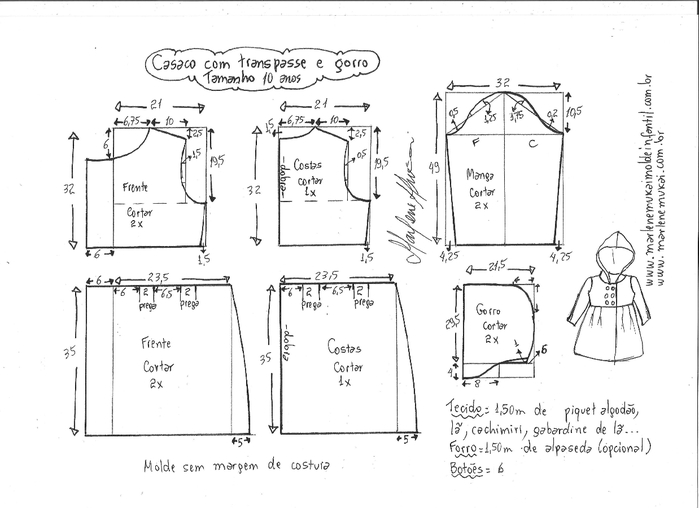 Casaco com transpasse e gorro
Tamanho 10 anos
21
6,75 10
6
2,5
1,5
19,5
32
Frente
Cortar
2x
6
1,5
21
6,75 10
1,5
2,5
0,5
19,5
32
dobra
Costas
cortar
1x
1,5
32
0,5
1,25
1,75
0,2
10,5
F C
49
Manga
Cortar
2x
4,25 4,25
www.marlenemukaimoldeinfantil.com.br
www.marlenemukai.com.br
6 23,5
6 2 6,5 2
prega prega
35
Frente
Cortar
2x
5
23,5
6 2 6,5 2
prega prega
35
dobra
Costas
Cortar
1x
5
21,5
29,5
Gorro
cortar
2x
1
6
4
8
Tecido = 1,50m de piquet algodão,
lã, cachimiri, gabardine de lã...
Forro = 1,50m de alpaseda (opcional)
Botões = 6
Molde sem margem de costura